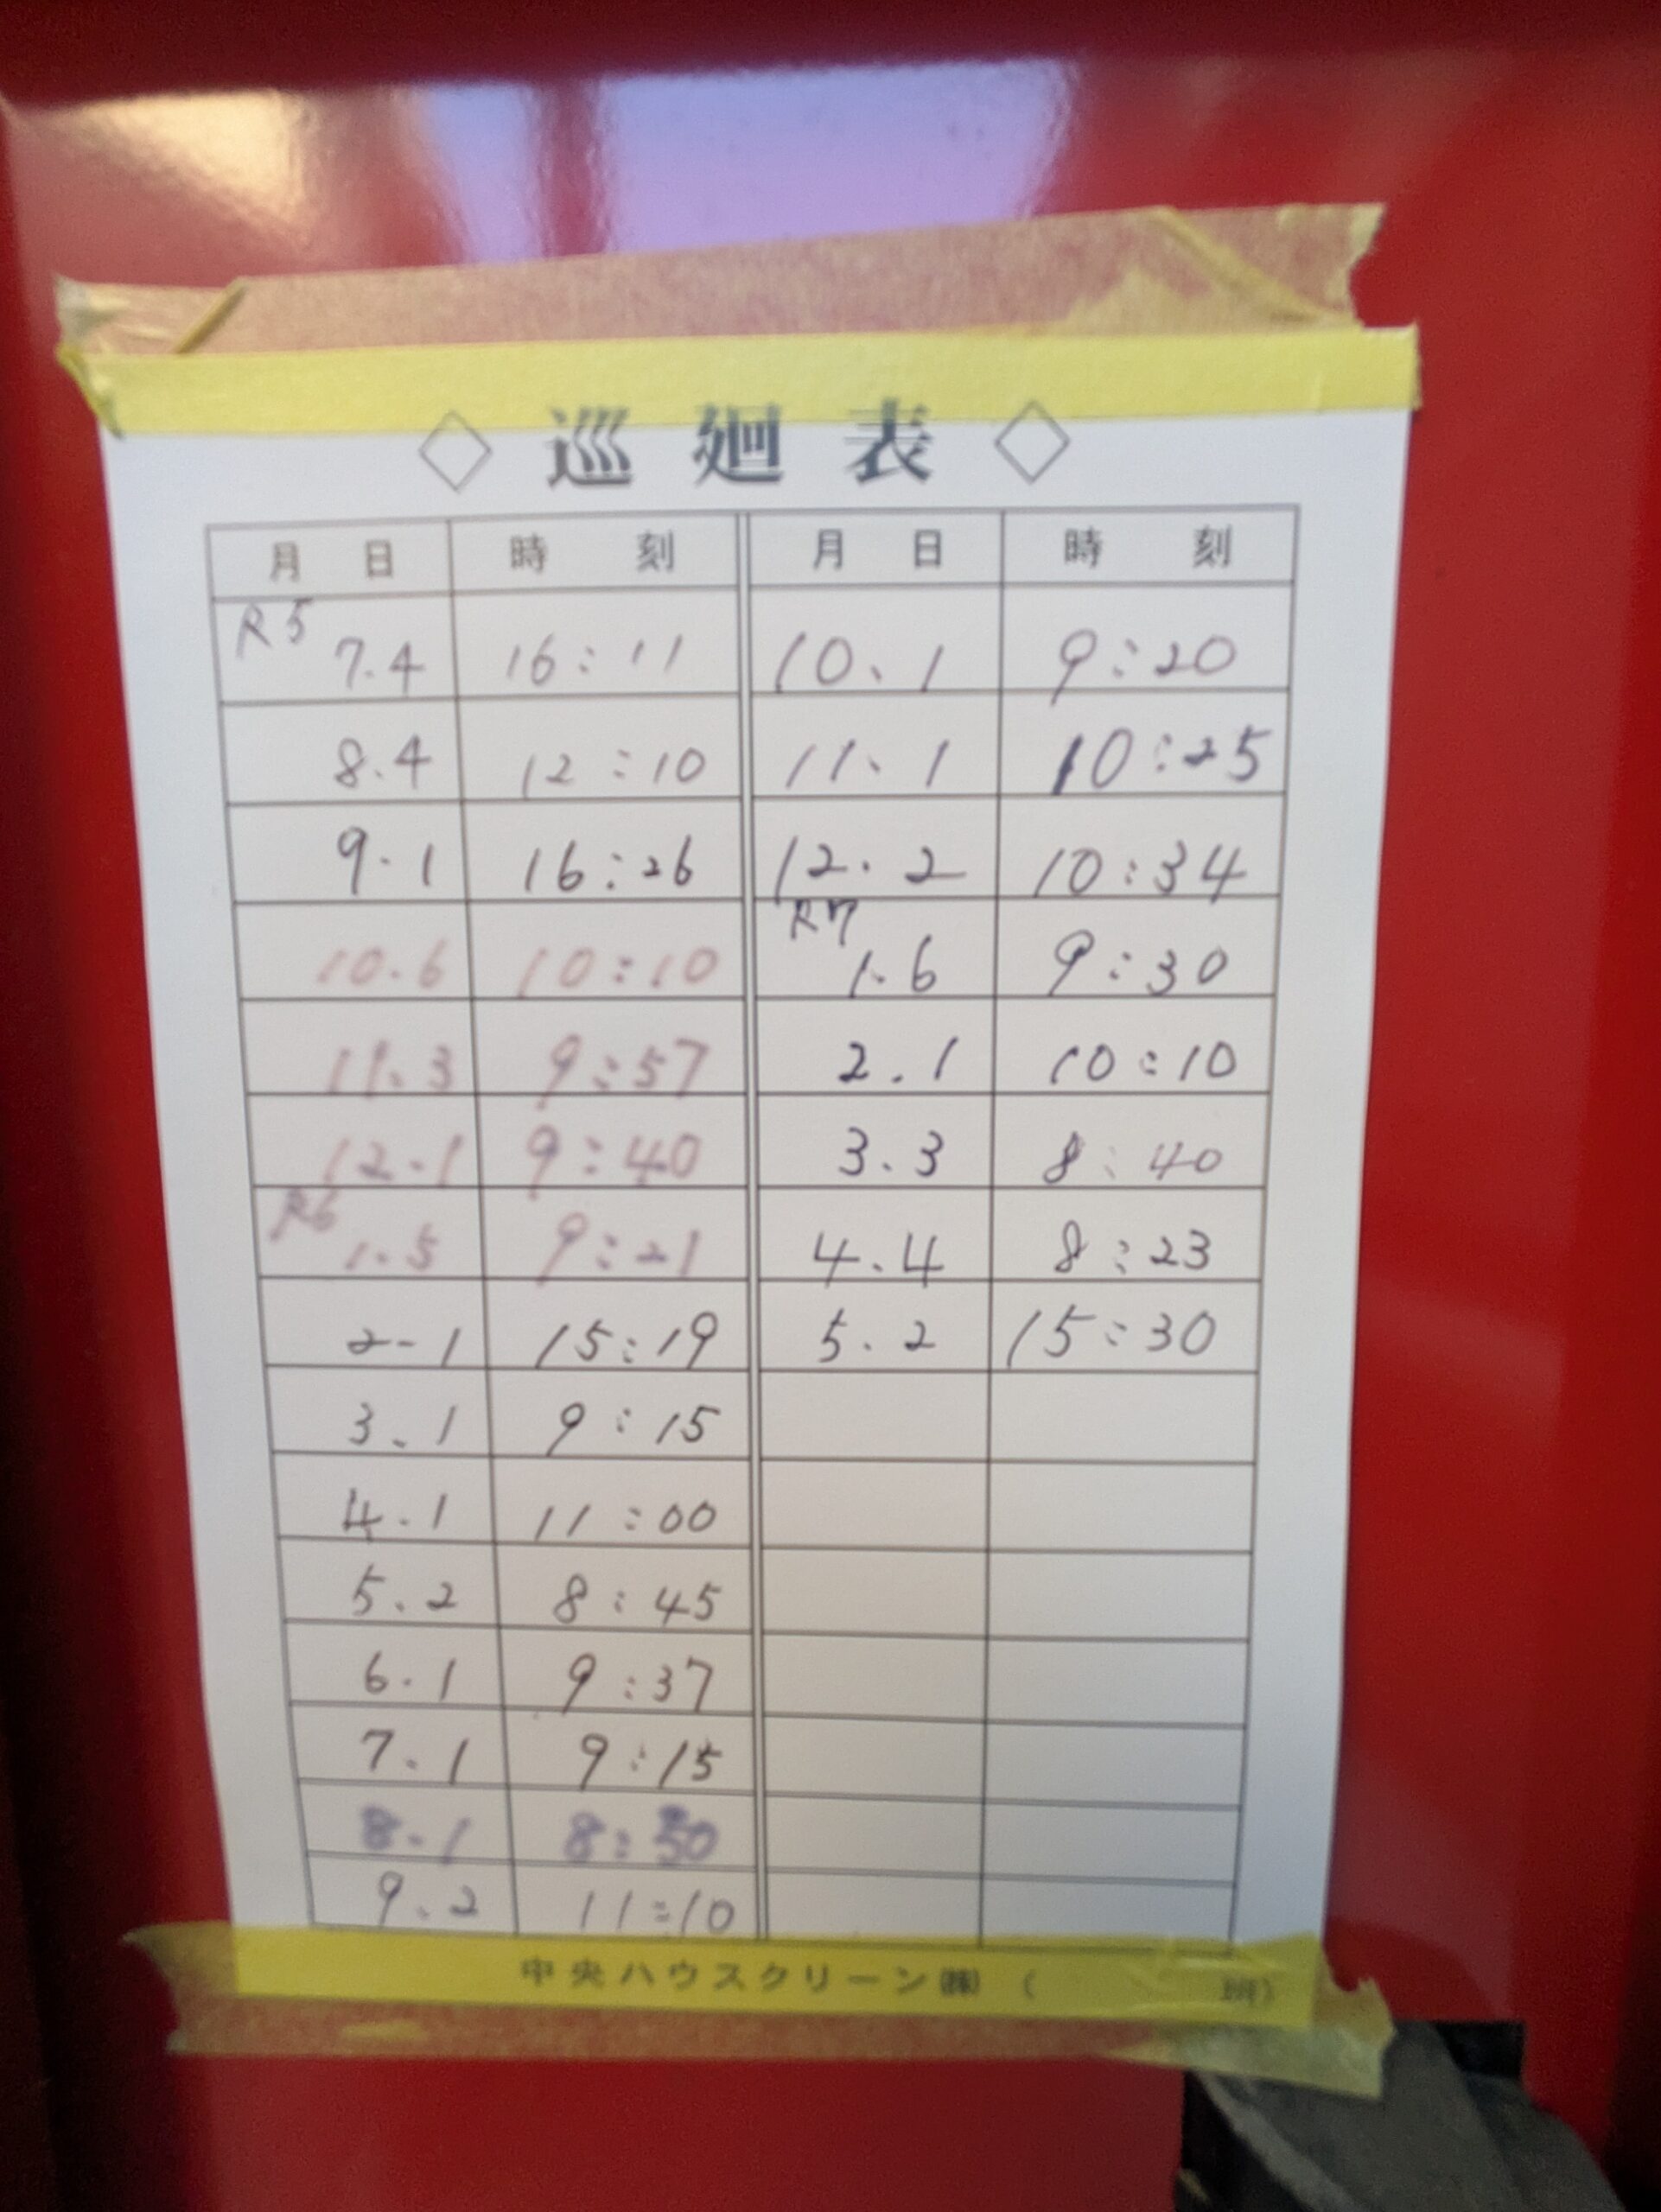 ◇ 巡廻表 ◇
月日 時刻 月日 時刻
R5 7.4 16:11 10.1 9:20
8.4 12:10 11.1 10:25
9.1 16:26 12.2 10:34
10.6 10:10 R7 1.6 9:30
11.3 9:57 2.1 10:10
12.1 9:40 3.3 8:40
R6 1.5 9:21 4.4 8:23
2-1 15:19 5.2 15:30
3.1 9:15
4.1 11:00
5.2 8:45
6.1 9:37
7.1 9:15
8.1
9.2 11:10
中央ハウスクリーン㈱ ( 班)